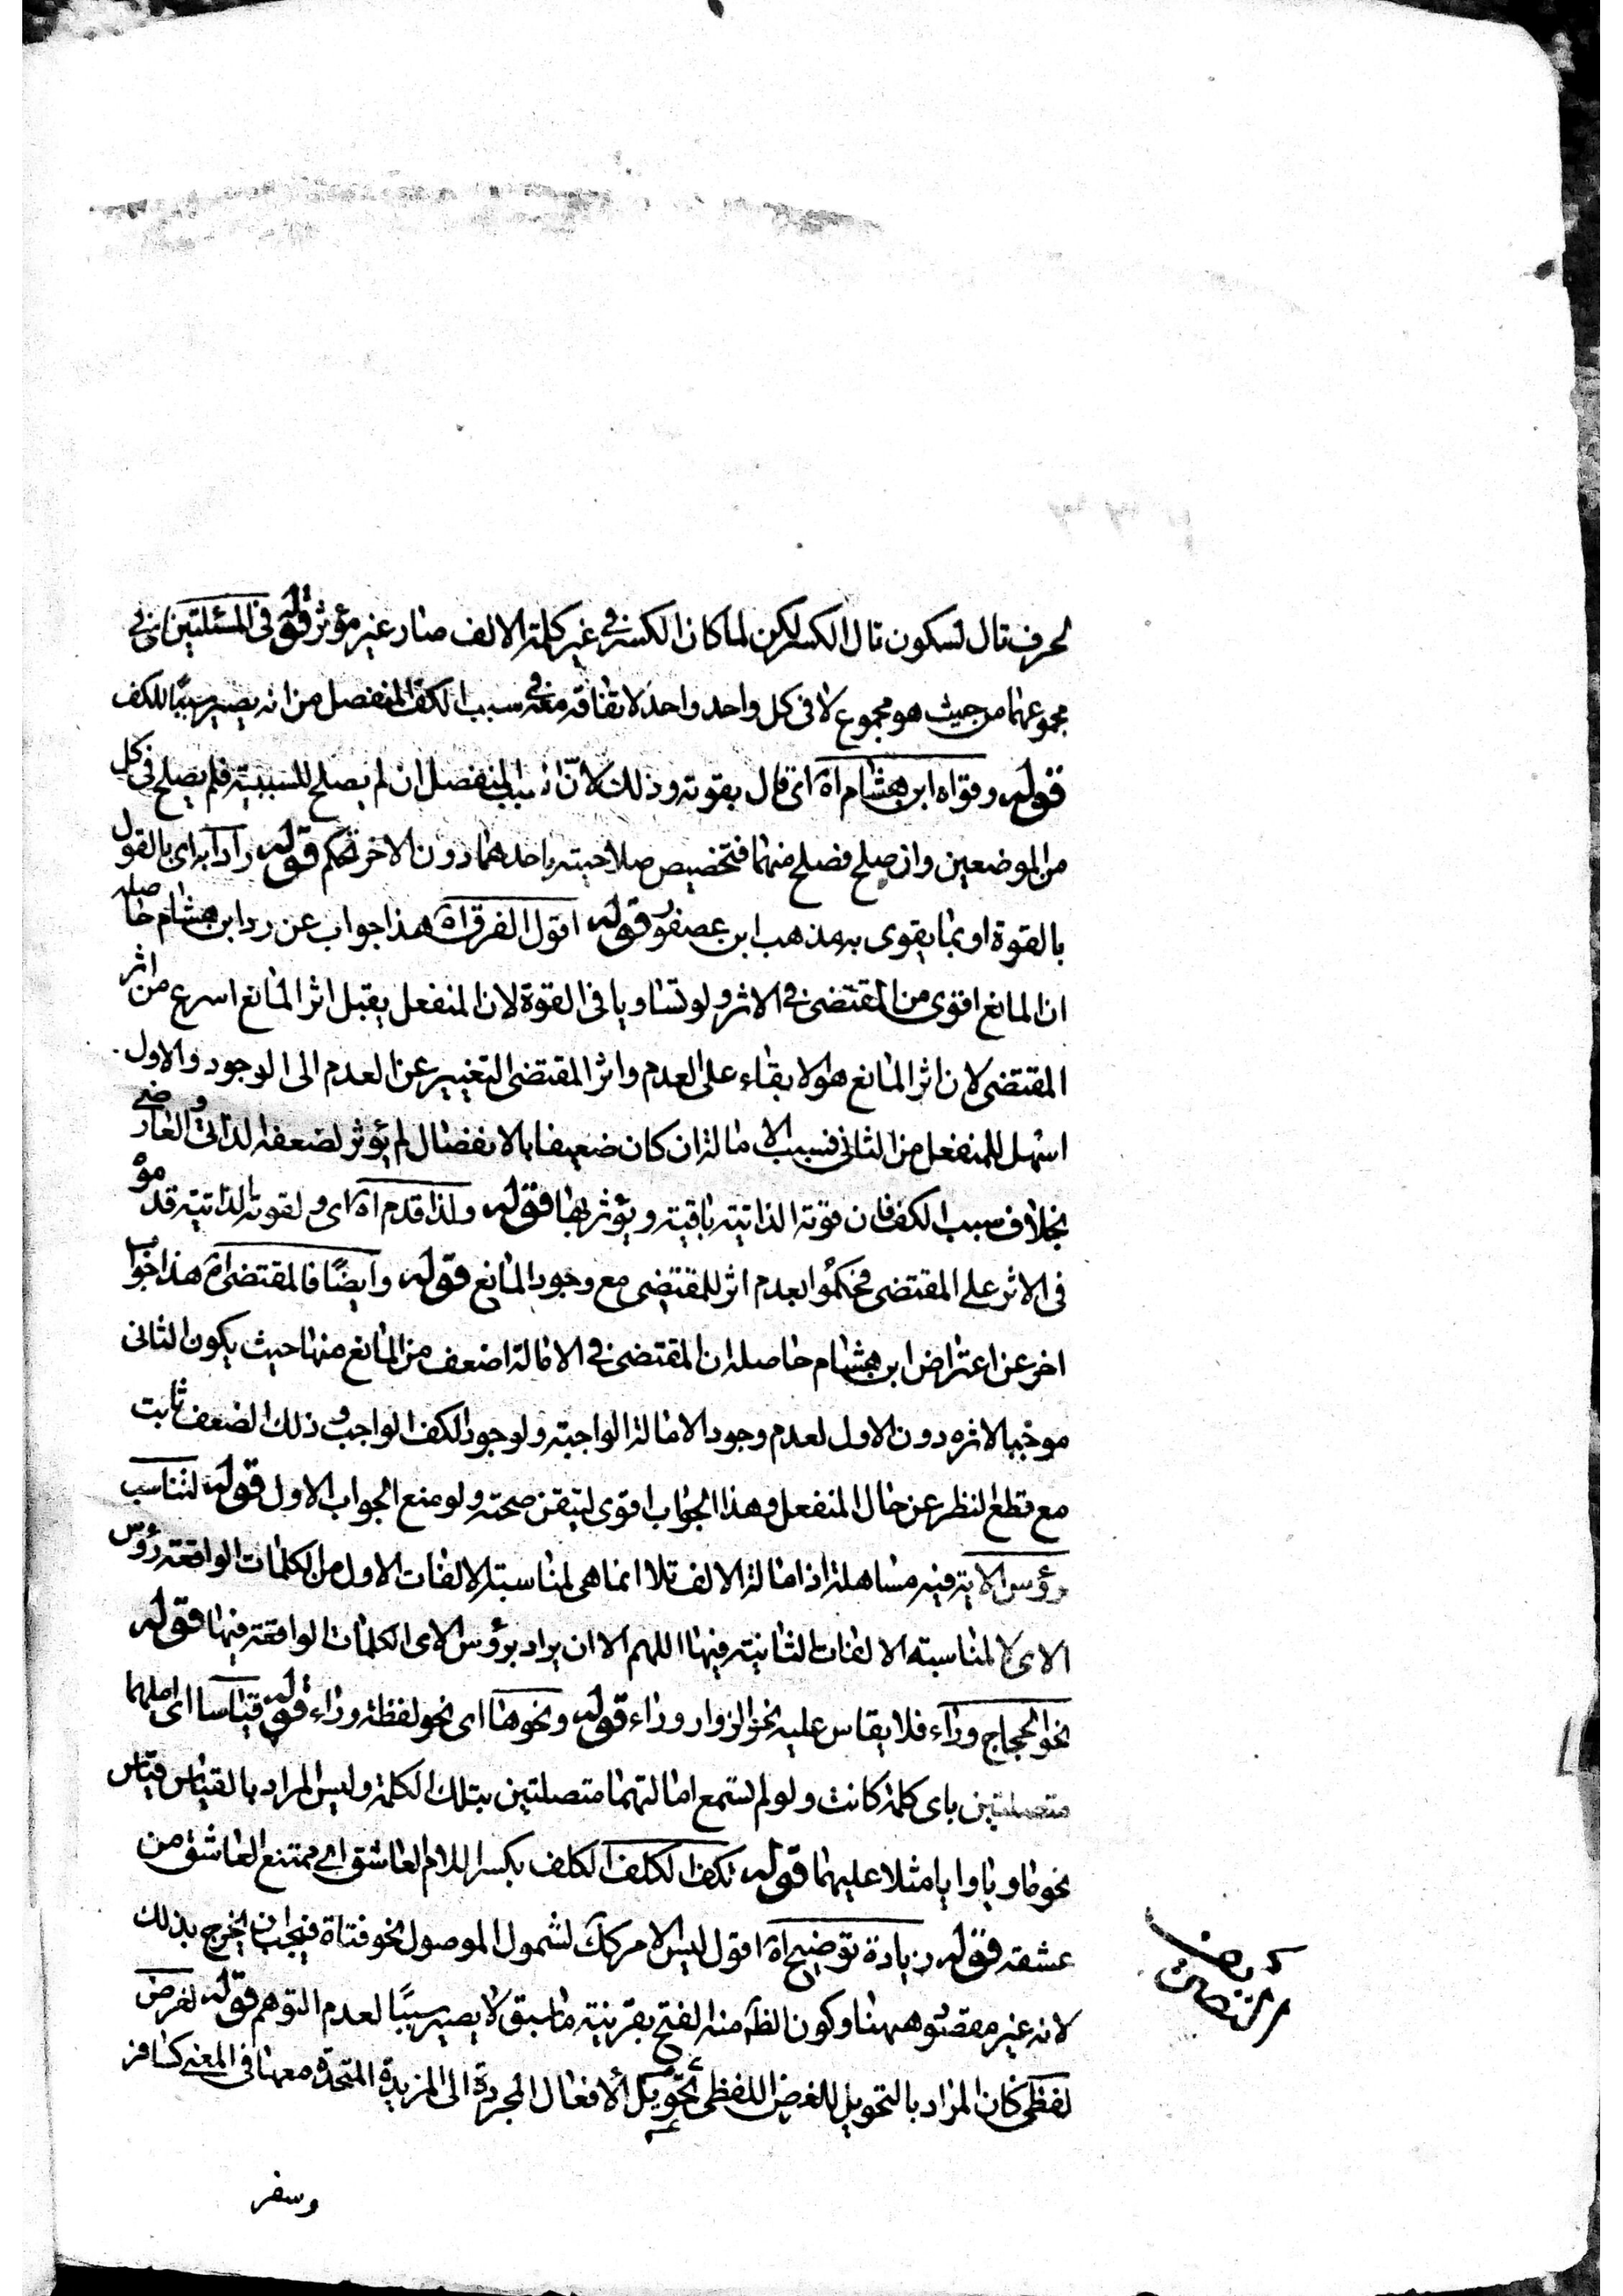 لحرف تال لسكون تال الكسر لكن لما كان الكسر في غير كلمة الالف صار غير مؤثر قوله في المسئلتين اى في
مجموعهما من حيث هو مجموع لا في كل واحد واحد لاتفاقه معه في سبب الكف المنفصل من انه يصير سببًا للكف
قوله وقواه ابن هشام اه اى قال بقوته وذلك لانّ السبب المنفصل ان لم يصلح للسببية فلم يصلح في كل
من الموضعين وان صلح فصلح فيهما فتخصيص صلاحيته باحدهما دون الاخر تحكم قوله رادا به اى بالقول
بالقوة او بما يقوى به مذهب ابن عصفور قوله اقول الفرق اه هذا جواب عن رد ابن هشام حاصله
ان المانع اقوى من المقتضى في الاثر ولو تساويا في القوة لان المنفعل يقبل اثر المانع اسرع من اثر
المقتضى لان اثر المانع هو الابقاء على العدم واثر المقتضى التغيير عن العدم الى الوجود والاول
اسهل للمنفعل من الثاني فسبب الامالة ان كان ضعيفا بالانفصال لم يؤثر لضعفه الذاتى والعارضى
بخلاف سبب الكف فان قوته الذاتية باقية ويؤثر بها قوله ولذا قدم اه اى ولقوته الذاتية قدموه
في الاثر على المقتضى فحكموا بعدم اثر للمقتضى مع وجود المانع قوله وايضًا فالمقتضى اه هذا جواب
اخر عن اعتراض ابن هشام حاصله ان المقتضى في الامالة اضعف من المانع منها حيث يكون الثانى
موجبا لاثره دون الاول لعدم وجود الامالة الواجبة ولوجود الكف الواجب وذلك الضعف ثابت
مع قطع النظر عن حال المنفعل وهذا الجواب اقوى لتيقن صحته ولو منع الجواب الاول قوله لتناسب
رؤس الاية فيه مساهلة اذ امالة الالف تلا انما هى لمناسبة الالفات الاول من الكلمات الواقعة رؤس
الاى لا لمناسبة الالفات الثانية فيها اللهم الا ان يراد برؤس الاى الكلمات الواقعة فيها قوله
نحو الحجاج وراء فلا يقاس عليه نحو الزوار وراء قوله ونحوها اى نحو لفظة وراء قوله قياسا اى املهما
متصلتين باى كلمة كانت ولو لم تسمع امالتهما متصلتين بتلك الكلمة وليس المراد بالقياس قياس
نحو ما ويا وايا مثلا عليهما قوله تكف الكلف الكلف بكسر اللام العاشق اى يمتنع العاشق من
عشقه قوله زيادة توضيح اه اقول ليس الامر كك لشمول الموصول نحو فتاة فيجب ان يخرج بذلك
لانه غير مقصود ههنا وكون الظ منه الفتح بقرينة ما سبق لا يصير سببًا لعدم التوهم قوله لغرض
لفظى كان المراد بالتحويل للغرض اللفظى تحويل الافعال المجردة الى المزيدة المتحدة معها في المعنى كسافر
وسفر
التصريف